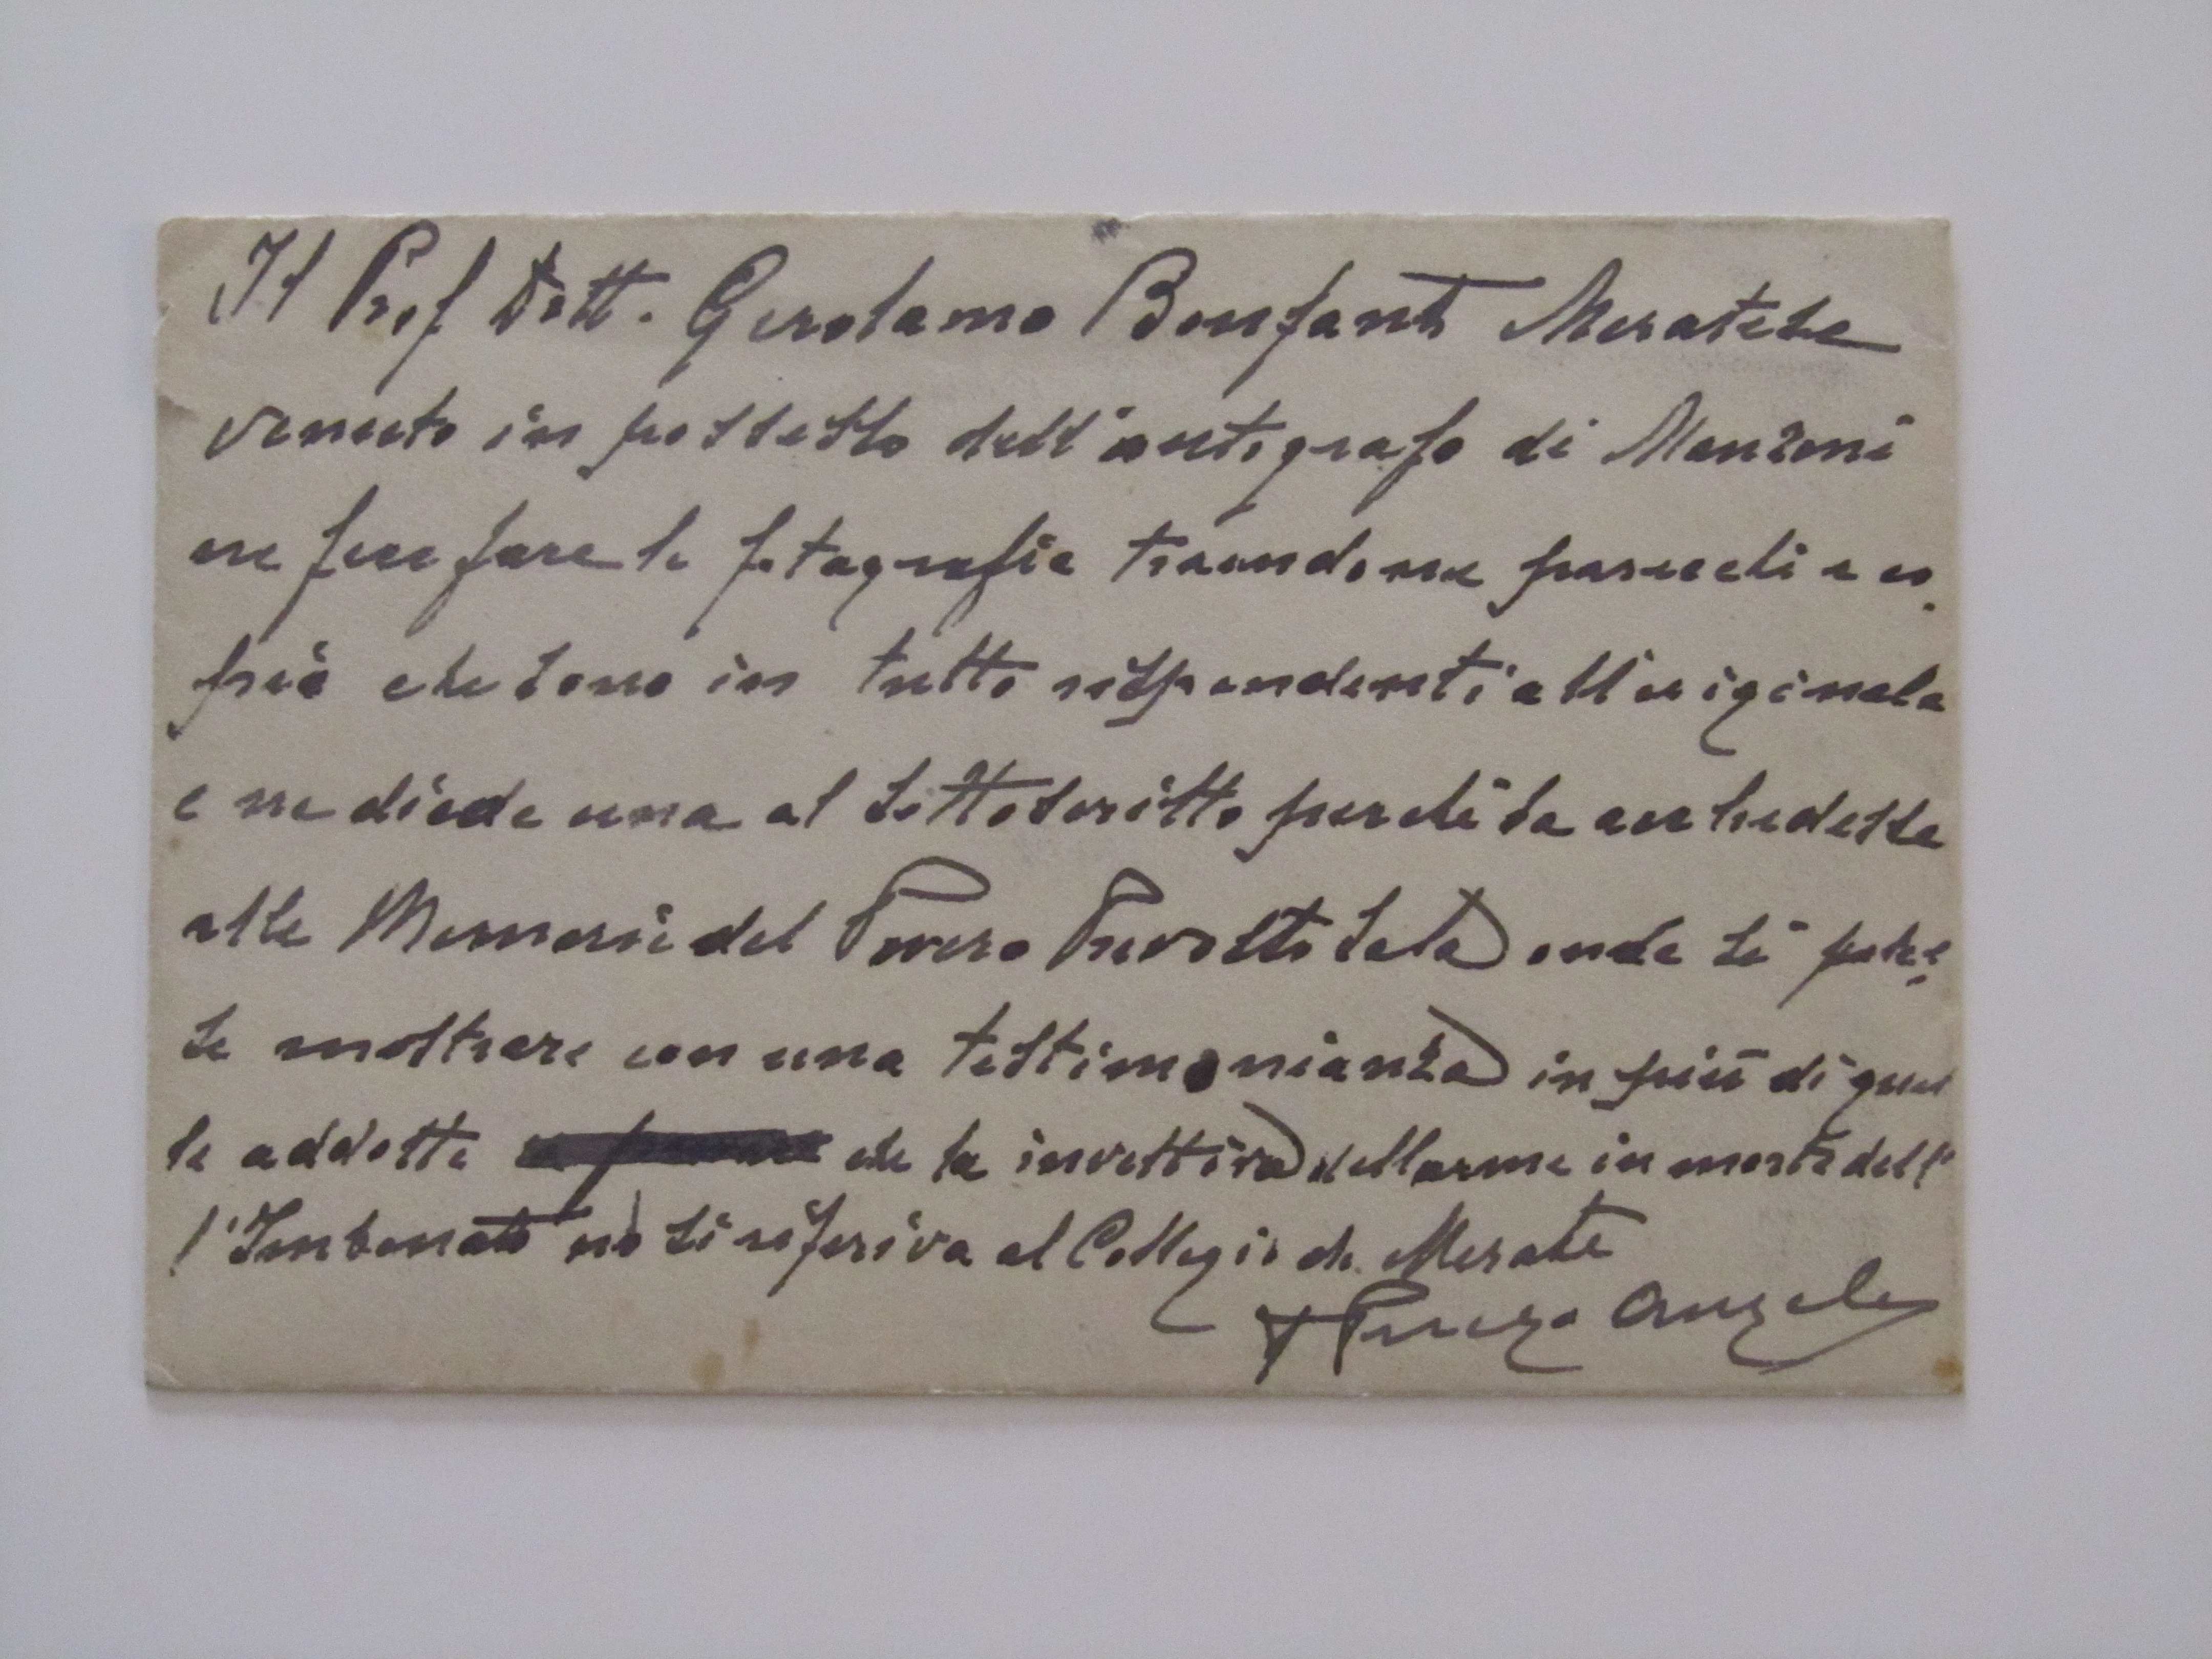 Il Prof Dott. Gerolamo Bonfanti Meratese
venuto in possesso dell'autografo di Manzoni
ne fece fare la fotografia traendone parecchie co.
pie che sono in tutto rispondenti all'originale
e ne diede una al sottoscritto perché la accludesse
alle Memorie del Povero Prevosto Sala onde si potes
se mostrare con una testimonianza in più di quel
le addotte che la invettiva dellarme in morte dell'
l'Imbonati no si riferiva al Collegio di Merate
Angelo